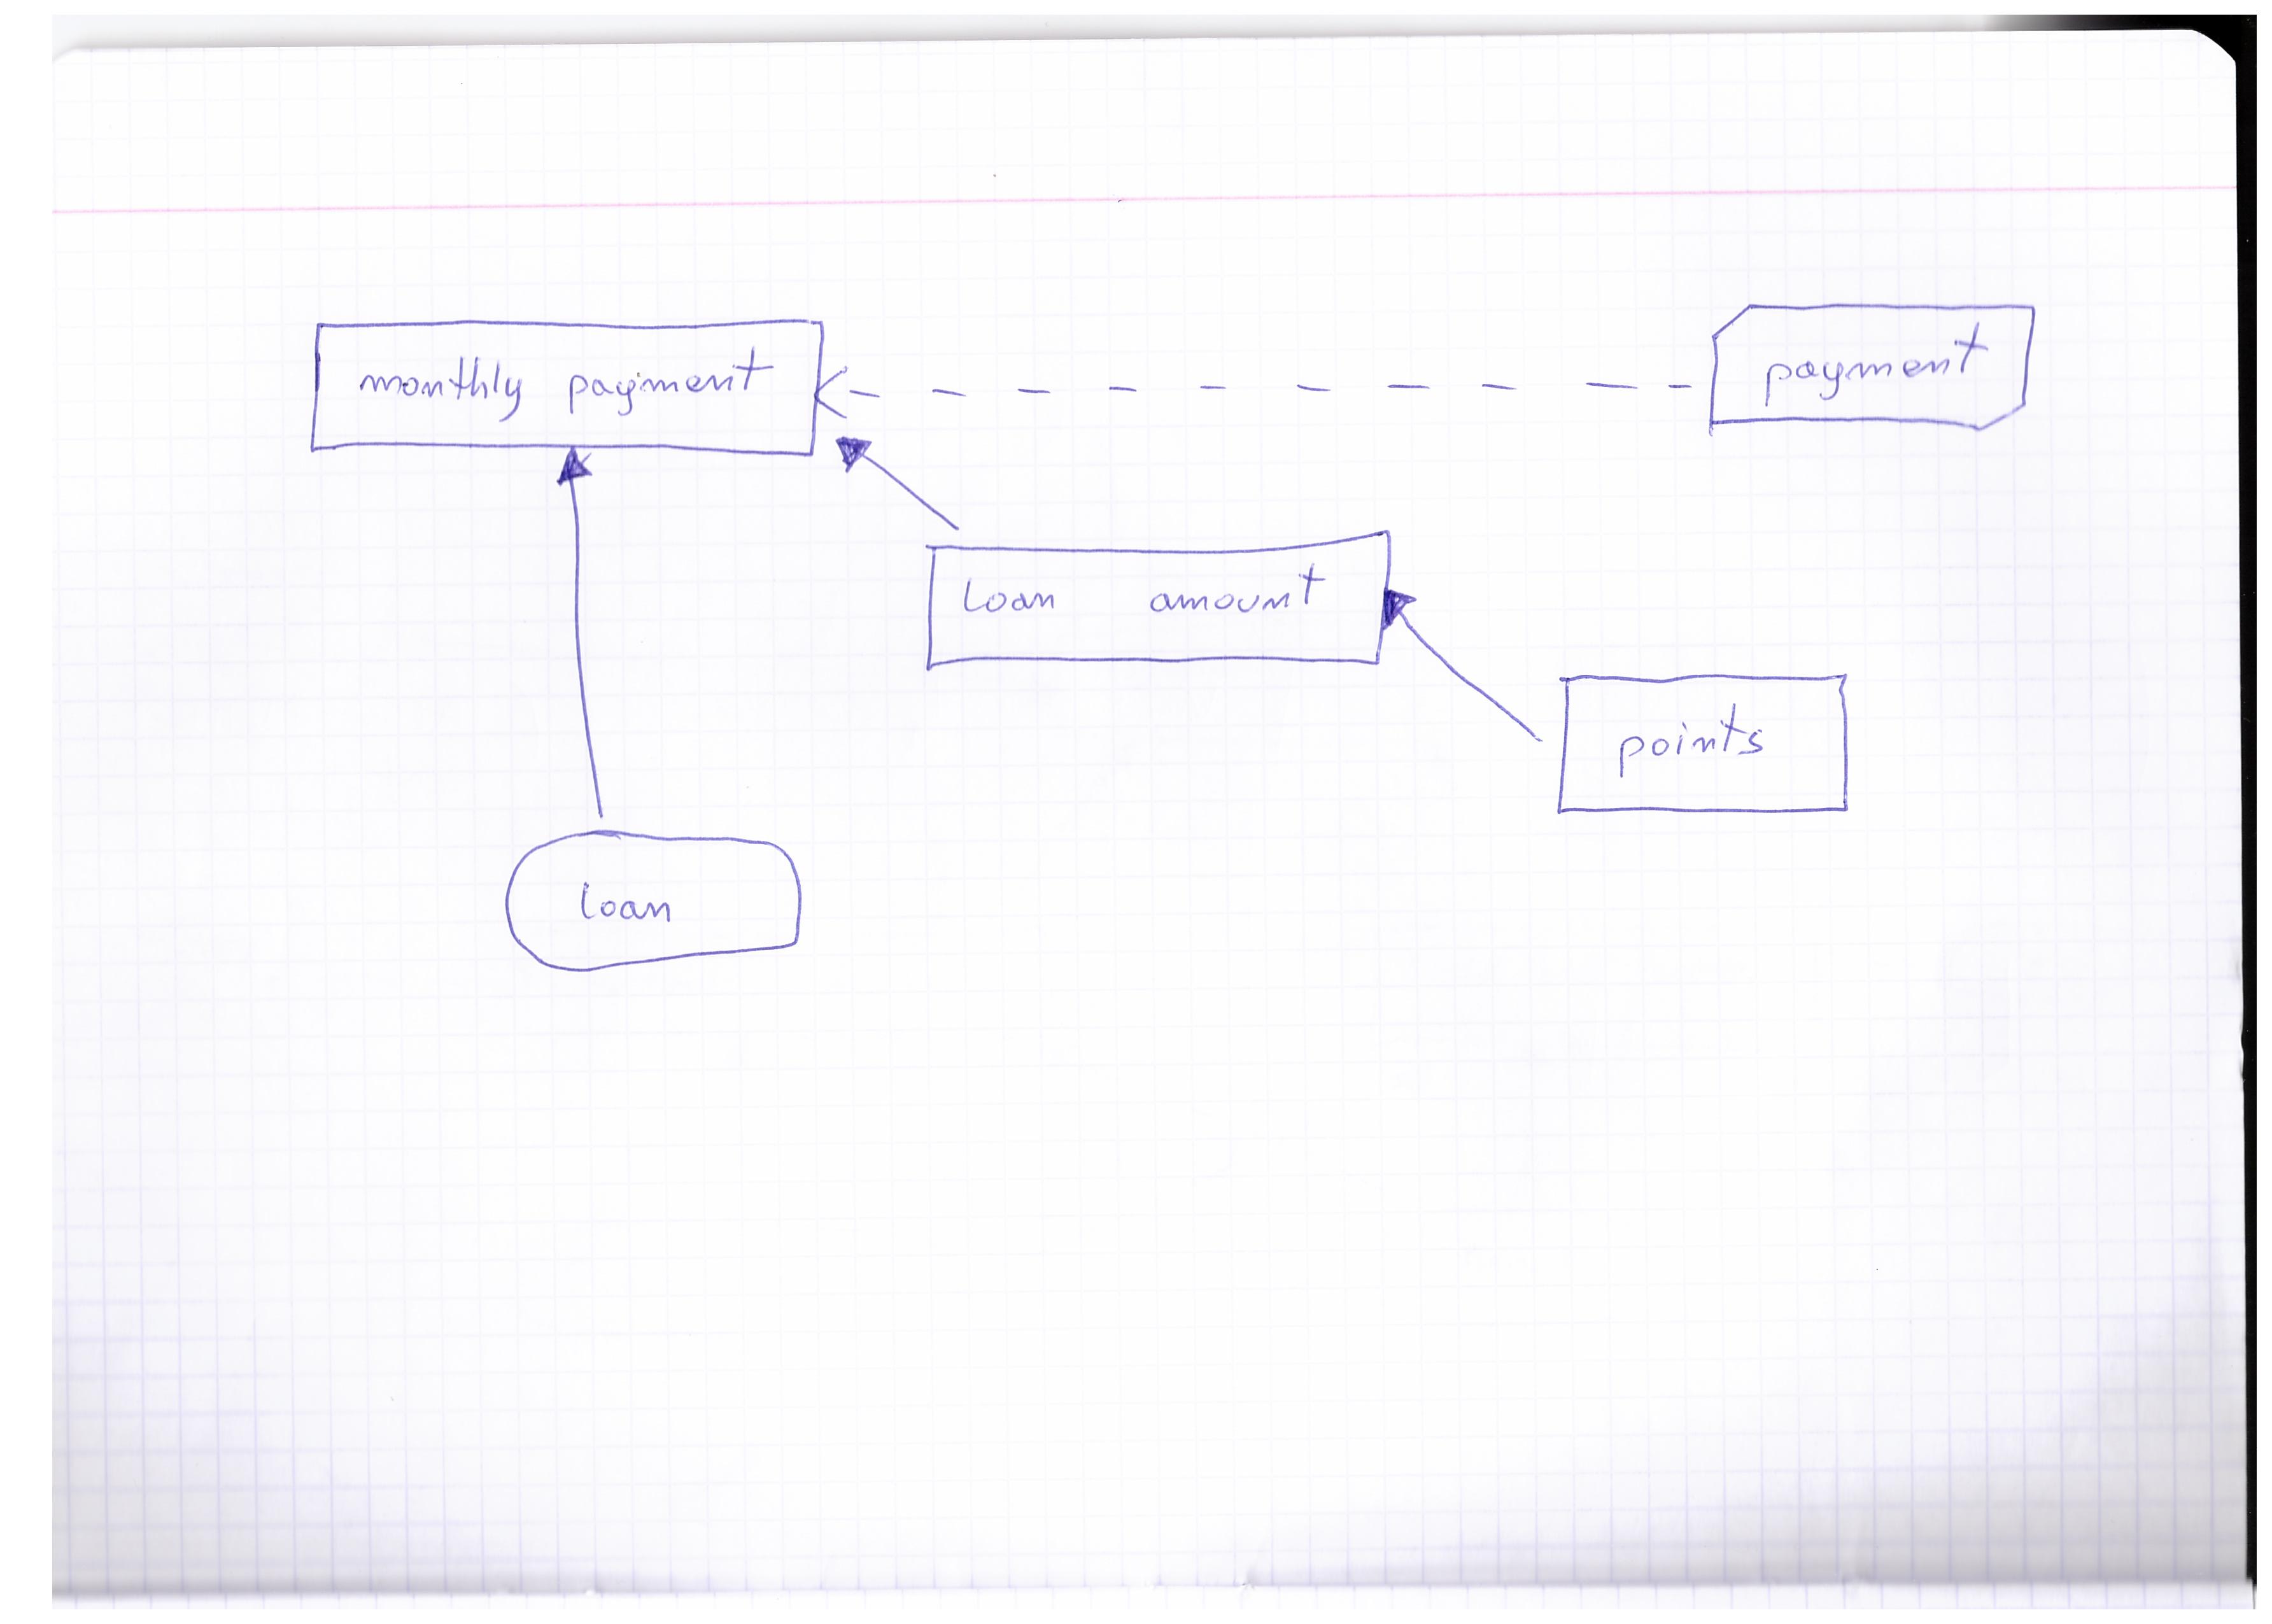 monthly payment
payment
loan amount
points
loan